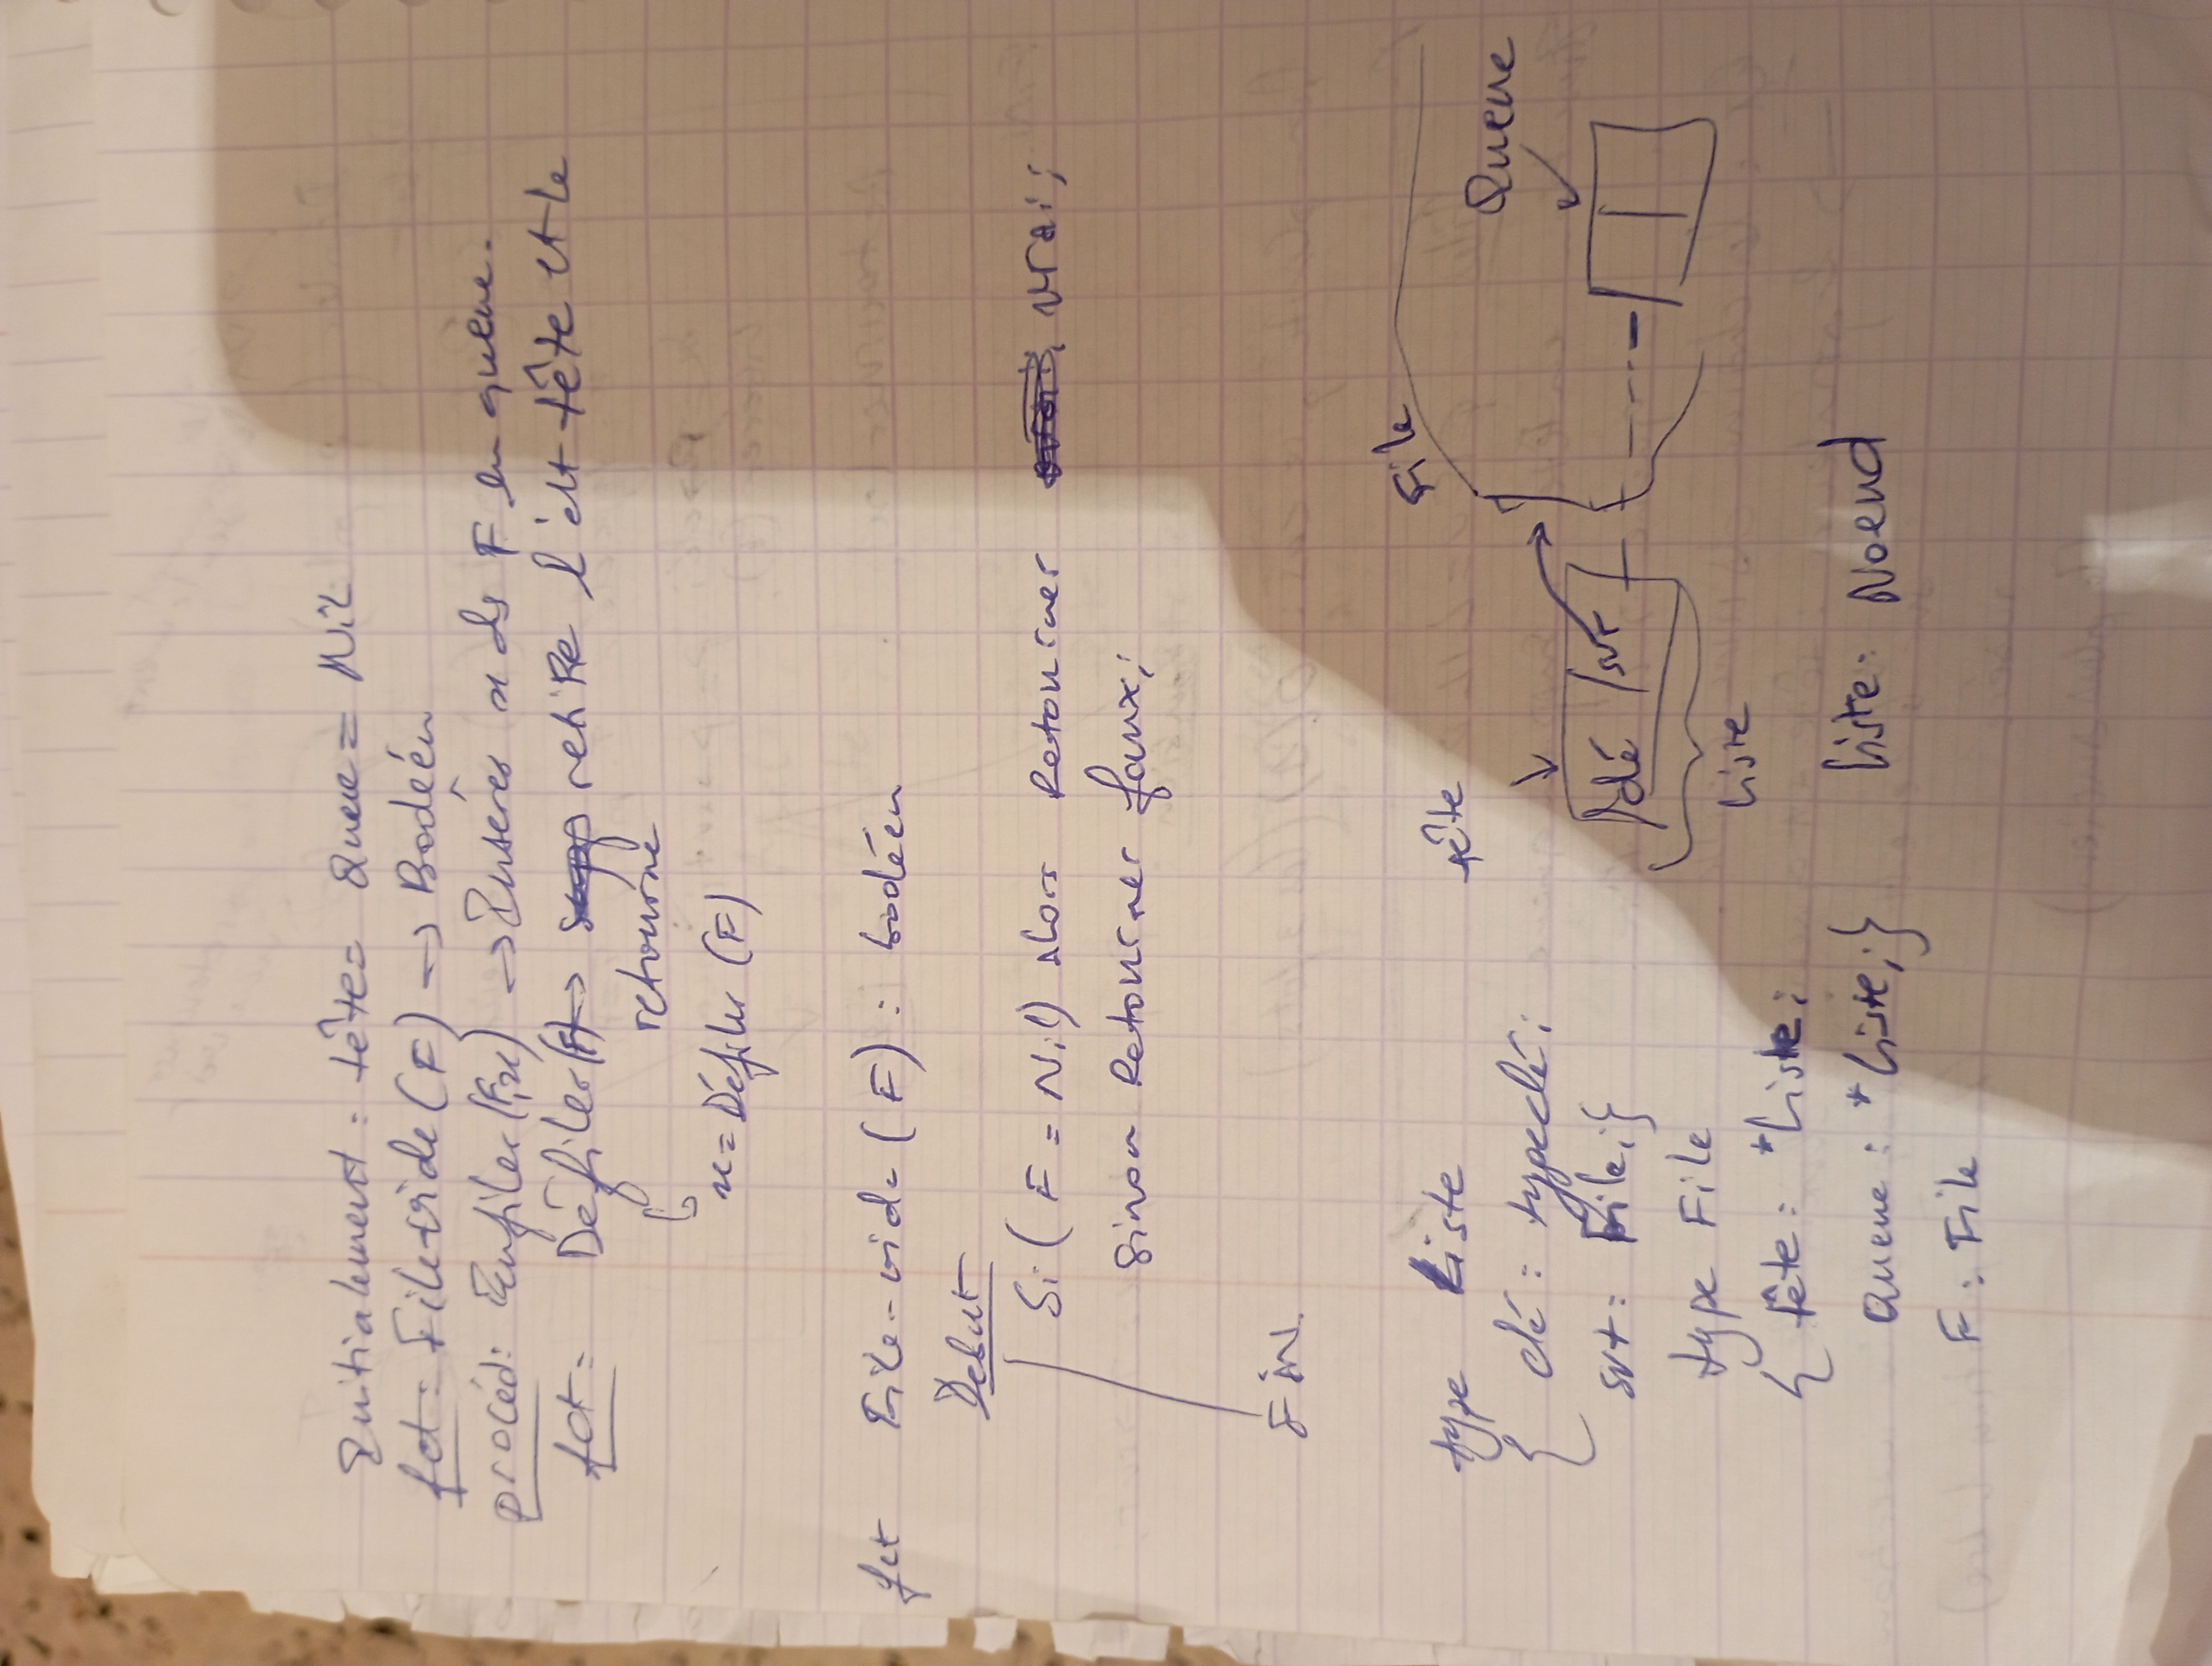 Initialement : tête = Queue = Nil
fct : File vide (F) → Booléen
procéd : Enfiler (F, x) → Insères x ds F en queue.
fct : Défiler (F) → retire l'élt tête et le
retourne
x = Défiler (F)
fct File-vide (F) : booléen
Debut
Si (F = Nil) alors Retourner vrai ;
Sinon Retourner faux ;
FIN.
type Liste
{ clé : typeclé ;
svt : File ; }
type File
{ tête : *Liste ;
Queue : *Liste ; }
F : File
tête
File
Queue
clé svt
Liste
Liste : Noeud